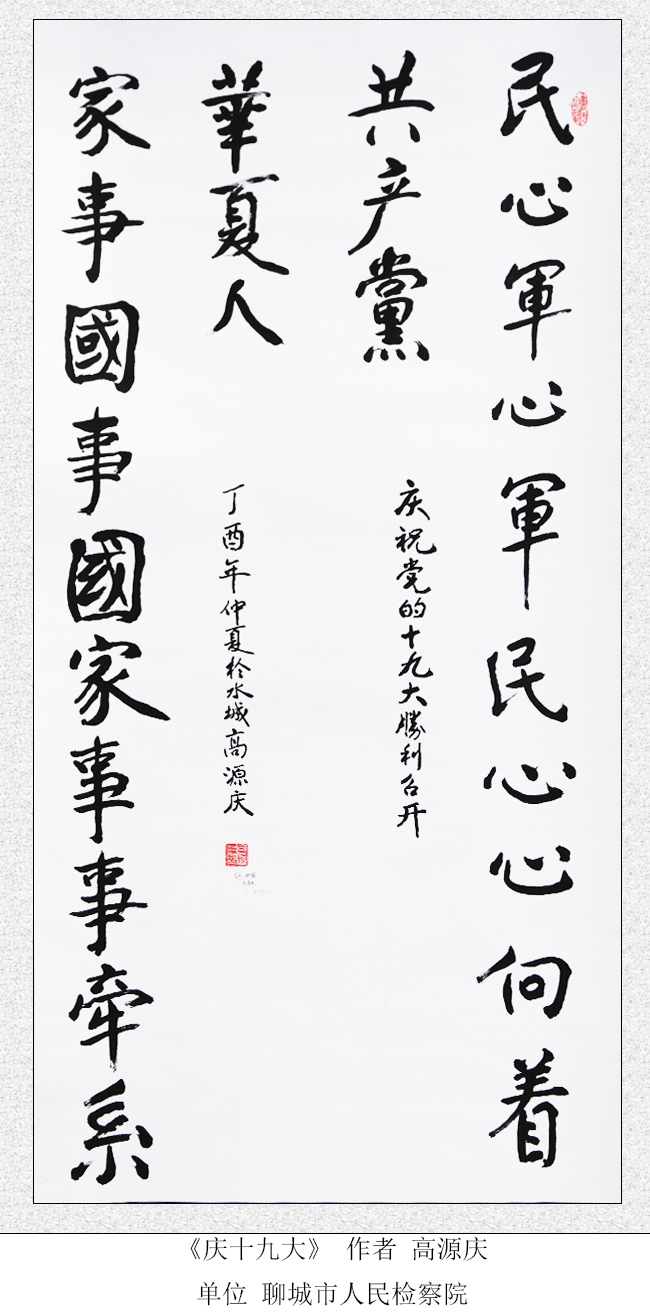 民心軍心軍民心心向着
共产黨
庆祝党的十九大勝利召开
華夏人
丁酉年仲夏於水城高源庆
家事國事國家事事牵系
《庆十九大》 作者 高源庆
单位 聊城市人民检察院